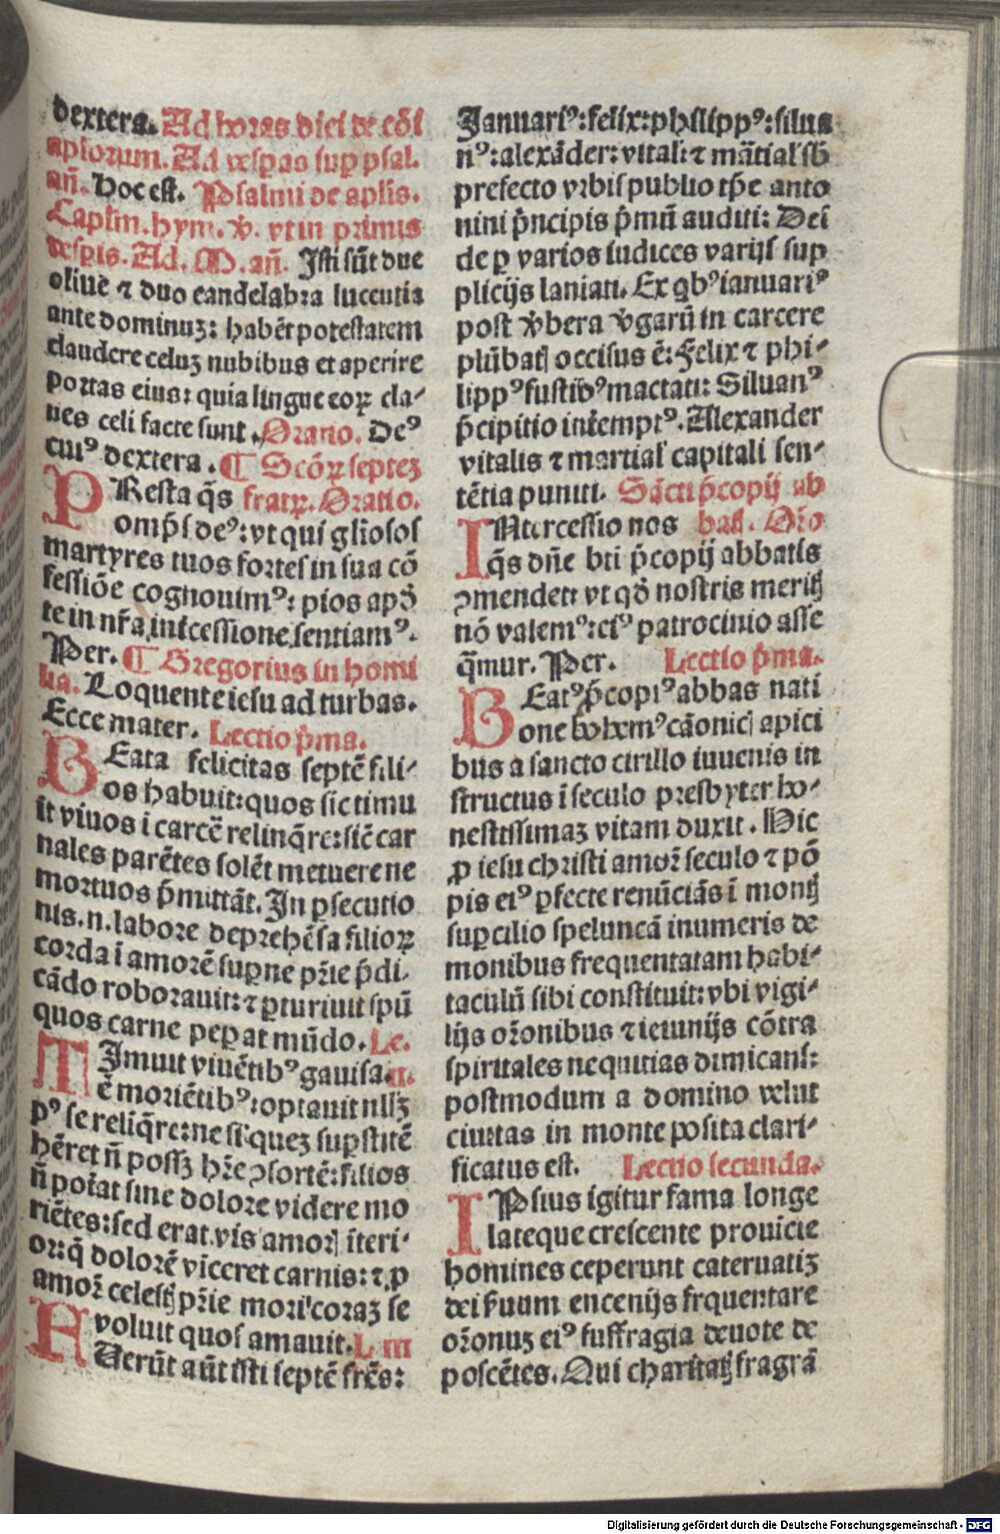 dextera. Ad horas diei de cōi
aplorum. Ad vesp̄as sup psal.
añ. Hoc est. Psalmi de aplis.
Caplm. hym. v̄. vt in primis
vesp̄is. Ad. M. añ. Isti sūt due
oliue ⁊ duo candelabra lucentia
ante dominuʒ: habēt potestatem
claudere celuʒ nubibus et aperire
portas eius: quia lingue eoꝝ cla⸗
ues celi facte sunt. Oratio. Deꝰ
cuiꝰ dextera. ¶ Scōꝝ septeʒ
PResta q̄s fratꝝ. Oratio.
omp̄s deꝰ: vt qui gl̄iosos
martyres tuos fortes in sua cō
fessiōe cognouimꝰ: pios apd̄
te in nr̄a int̄cessione sentiamꝰ.
Per. ¶ Gregorius in homi
lia. Loquente iesu ad turbas.
Ecce mater. Lectio p̄ma.
BEata felicitas septē fili⸗
os habuit: quos sic timu
it viuos i carcē relinq̄re: sic̄ car
nales parētes solēt metuere ne
mortuos p̄mittāt. In ꝑsecutio
nis. n. labore dep̄hēsa filioꝝ
corda ī amorē sup̄ne pr̄ie p̄di⸗
cādo roborauit: ⁊ ꝑturiuit spū
quos carne pep̄at mūdo. Le.
TImuit viuētibꝰ gauisa. ii.
ē moriētibꝰ: optauit nllʒ
pꝰ se reliq̄re: ne si queʒ sup̄stitē
hēret ñ possʒ hr̄e ꝯsortē: filios
ñ pot̄at sine dolore videre mo
riētes: sed erat vis amorꝭ īteri⸗
or: q̄ dolorē viceret carnis: ⁊ ꝓ
amor̄ celestꝭ pr̄ie mori coraʒ se
voluit quos amauit. L. iii
FUerūt aūt isti septē frēs:
Januariꝰ: felix: philippꝰ: silua
nꝰ: alexāder: vital: ⁊ mātial sb̄
prefecto vrbis publio tp̄e anto
nini p̄ncipis p̄mū auditi: Dei
de ꝑ varios iudices varijs sup
plicijs laniati. Ex qbꝰ ianuariꝰ
post v̄bera v̄garū in carcere
plūbatꝭ occisus ē: Felix ⁊ phi⸗
lippꝰ fustibꝰ mactati: Siluanꝰ
p̄cipitio int̄emptꝰ. Alexander
vitalis ⁊ martial capitali sen⸗
tētia puniti. Sācti p̄copij ab
INtercessio nos bat̄. Or̄o
q̄s dn̄e bti p̄copij abbatis
ꝯmendet: vt qd̄ nostris meritꝭ
nō valemꝰ: eiꝰ patrocinio asse
q̄mur. Per. Lectio p̄ma.
BEatꝰ p̄copiꝰ abbas nati
one bohemꝰ cāonicꝭ apici
bus a sancto cirillo iuuenis in
structus ī seculo presbyter ho⸗
nestissimaʒ vitam duxit. Hic
ꝓ iesu christi amor̄ seculo ⁊ pō
pis eiꝰ ꝑfecte renūciās ī montꝭ
sup̄cilio speluncā inumeris de
monibus frequentatam habi⸗
taculū sibi constituit: vbi vigi⸗
lijs or̄onibus ⁊ ieiunijs cōtra
spiritales nequitias dimicans:
postmodum a domino velut
ciuitas in monte posita clari⸗
ficatus est. Lectio secunda.
IPsius igitur fama longe
lateque crescente prouīcie
homines ceperunt cateruatiʒ
dei s̄uum encenijs frquentare
or̄onuʒ eiꝰ suffragia deuote de
poscētes. Qui charitatꝭ fragrā
Digitalisierung gefördert durch die Deutsche Forschungsgemeinschaft - DFG